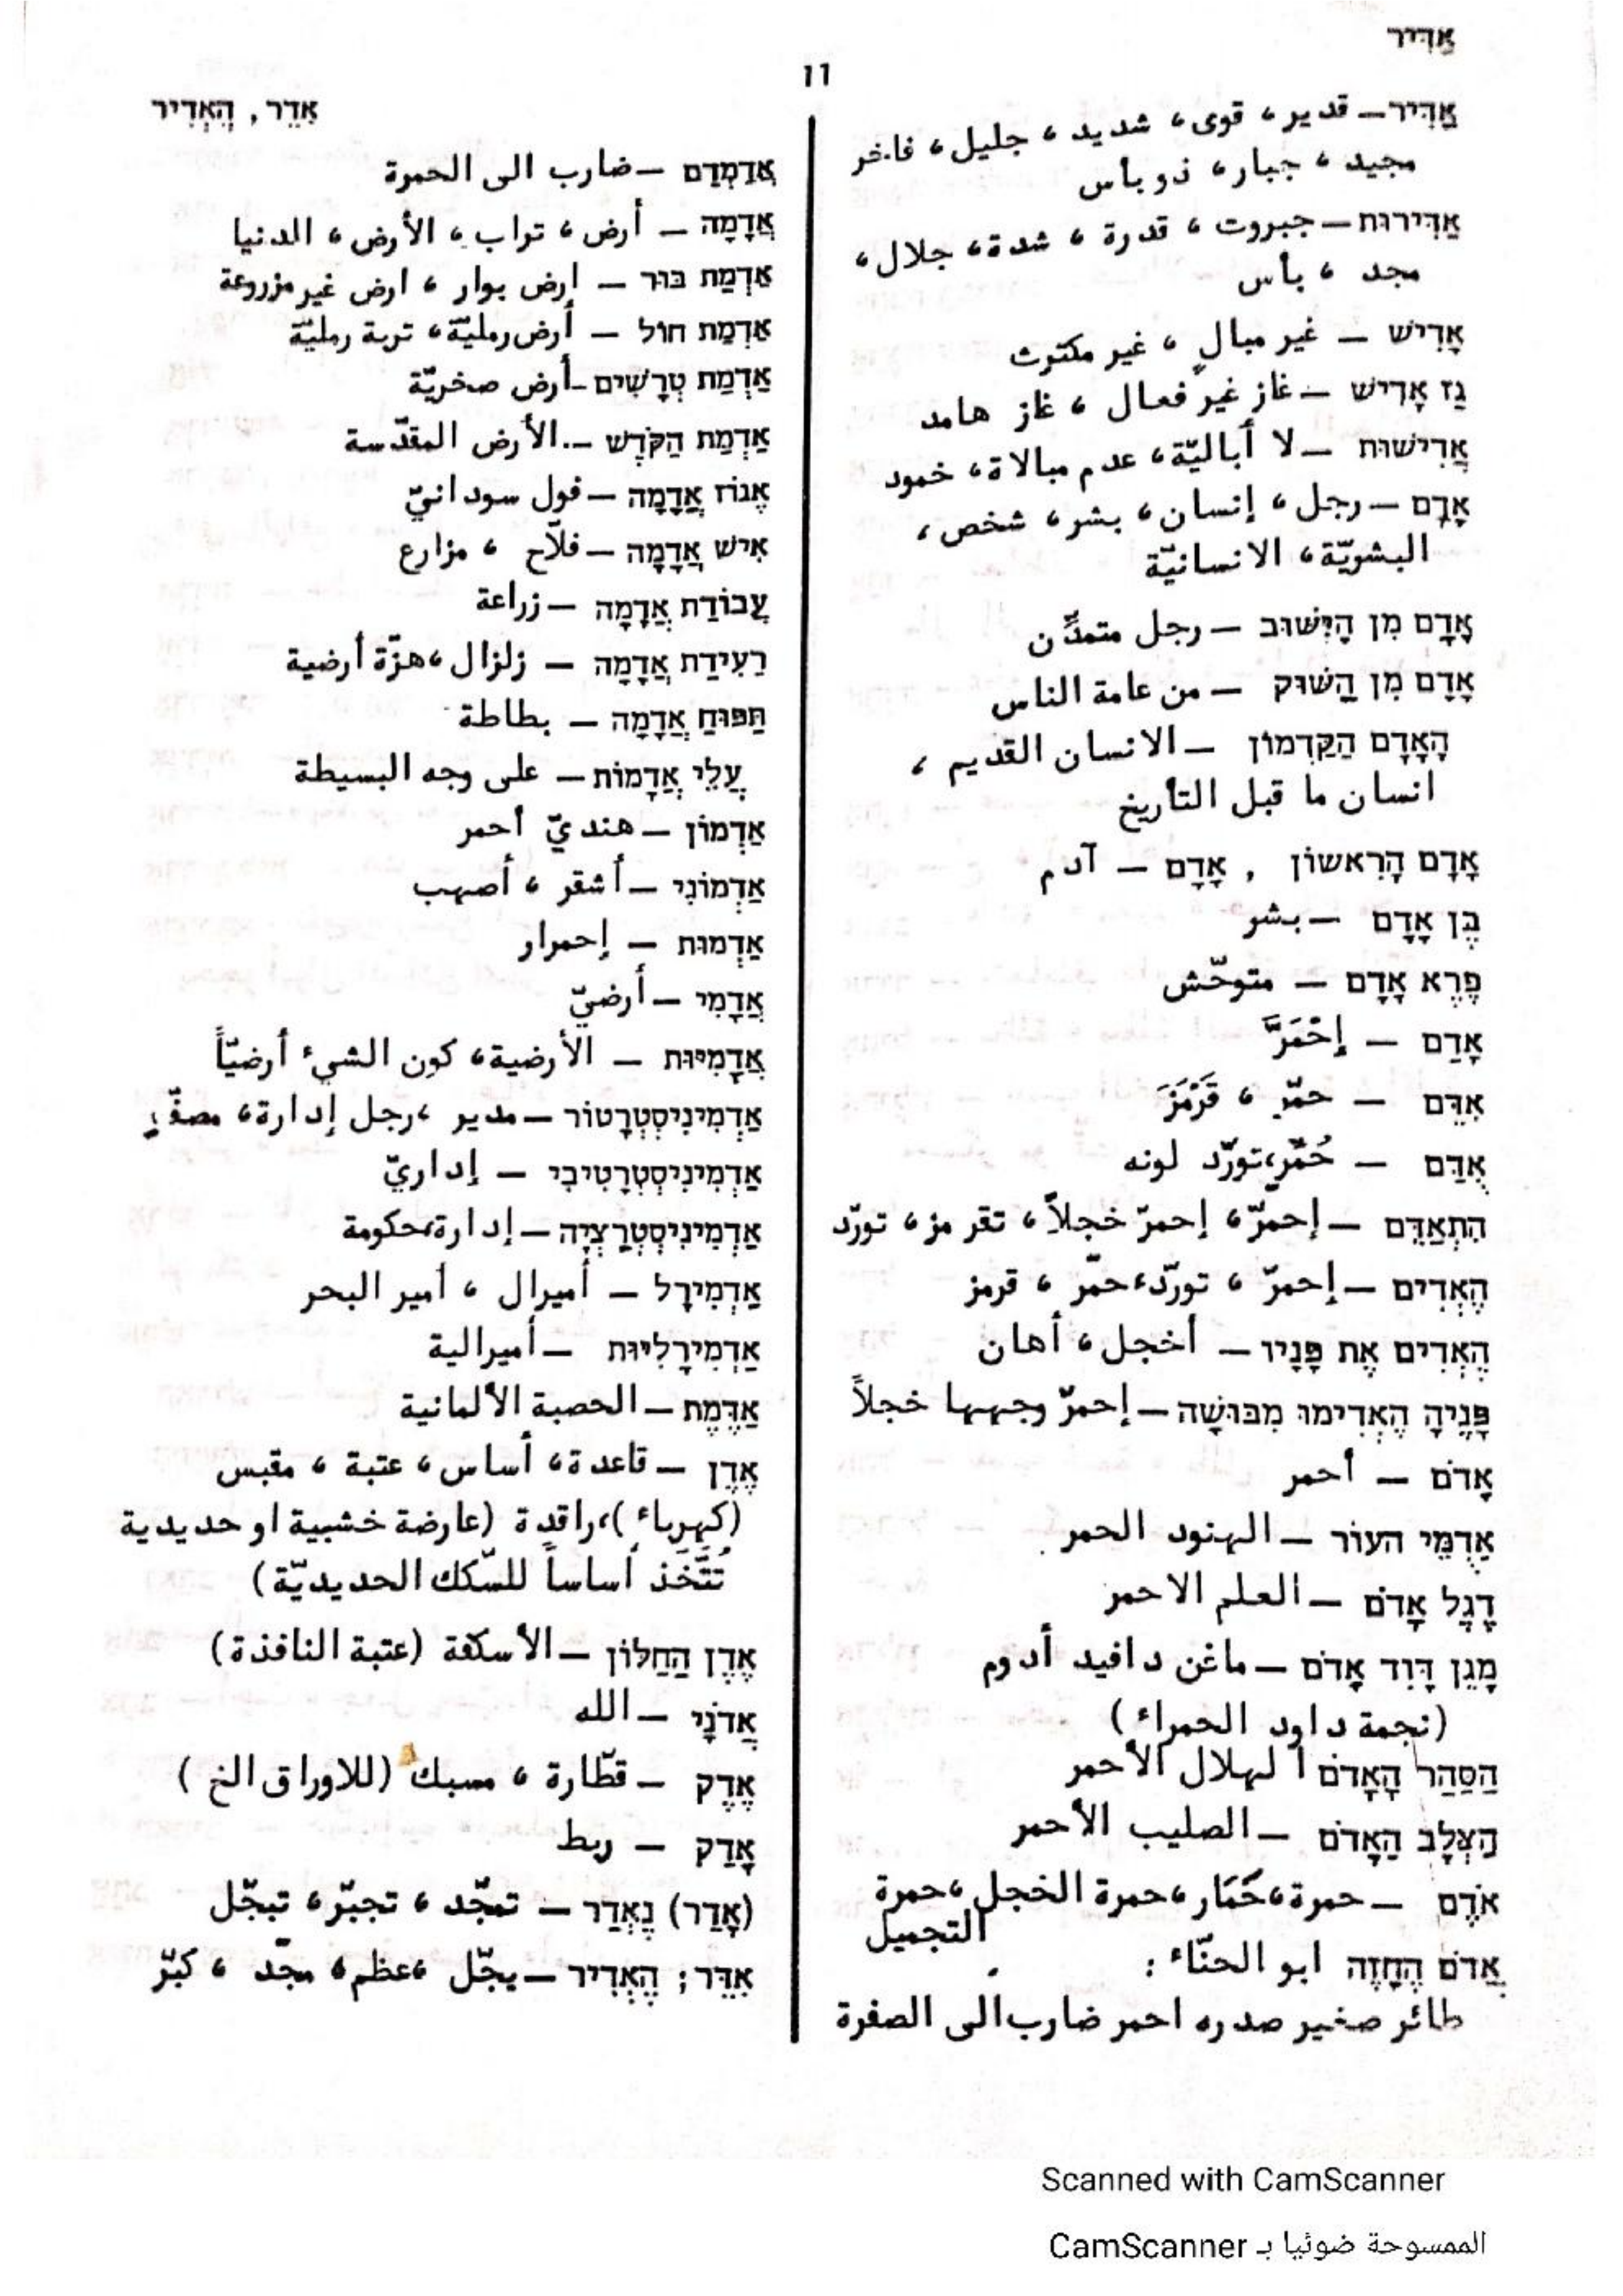 אַדִּיר
11
אַדִּיר — قدير، قوى، شديد، جليل، فاخر
مجيد، جبار، ذو بأس
אַדִּירוּת — جبروت، قدرة، شدة، جلال،
مجد، بأس
אָדִישׁ — غير مبالٍ، غير مكترث
גַּז אָדִישׁ — غاز غير فعال، غاز هامد
אֲדִישׁוּת — لا أباليّة، عدم مبالاة، خمود
אָדָם — رجل، إنسان، بشر، شخص،
البشريّة، الانسانيّة
אָדָם מִן הַיִּשּׁוּב — رجل متمدّن
אָדָם מִן הַשּׁוּק — من عامة الناس
הָאָדָם הַקַּדְמוֹן — الانسان القديم،
انسان ما قبل التأريخ
אָדָם הָרִאשׁוֹן , אָדָם — آدم
בֶּן אָדָם — بشر
פֶּרֶא אָדָם — متوحّش
אָדַם — إِحْمَرَّ
אִדֵּם — حمّر، قَرْمَزَ
אֻדַּם — حُمِّر، تورّد لونه
הִתְאַדֵּם — إحمرّ، إحمرّ خجلاً، تقرمز، تورّد
הֶאְדִּים — إحمرّ، تورّد، حمّر، قرمز
הֶאְדִּים אֶת פָּנָיו — أخجل، أهان
פָּנֶיהָ הֶאְדִּימוּ מִבּוּשָׁה — إحمرّ وجهها خجلاً
אָדֹם — أحمر
אֲדֻמֵּי הָעוֹר — الهنود الحمر
דֶּגֶל אָדֹם — العلم الاحمر
מָגֵן דָּוִד אָדֹם — ماغن دافيد أدوم
(نجمة داود الحمراء)
הַסַּהַר הָאָדֹם الهلال الأحمر
הַצְּלָב הָאָדֹם — الصليب الأحمر
אֹדֶם — حمرة، حَمَار، حمرة الخجل، حمرة
التجميل
אֲדֹם הֶחָזֶה ابو الحنّاء:
طائر صغير صدره احمر ضارب الى الصفرة
אִדֵּר, הֶאְדִּיר
אֲדַמְדַּם — ضارب الى الحمرة
אֲדָמָה — أرض، تراب، الأرض، الدنيا
אַדְמַת בּוּר — ارض بوار، ارض غير مزروعة
אַדְמַת חוֹל — أرض رمليّة، تربة رمليّة
אַדְמַת טְרָשִׁים — أرض صخريّة
אַדְמַת הַקֹּדֶשׁ — الأرض المقدّسة
אֱגוֹז אֲדָמָה — فول سودانيّ
אִישׁ אֲדָמָה — فلاّح، مزارع
עֲבוֹדַת אֲדָמָה — زراعة
רְעִידַת אֲדָמָה — زلزال، هزّة أرضية
תַּפּוּחַ אֲדָמָה — بطاطة
עֲלֵי אֲדָמוֹת — على وجه البسيطة
אַדְמוֹן — هنديّ أحمر
אַדְמוֹנִי — أشقر، أصهب
אַדְמוּת — إحمرار
אֲדָמִי — أرضيّ
אֲדָמִיּוּת — الأرضية، كون الشيء أرضيّاً
אַדְמִינִיסְטְרָטוֹר — مدير، رجل إدارة، مصفّ
אַדְמִינִיסְטְרָטִיבִי — إداريّ
אַדְמִינִיסְטְרַצְיָה — إدارة، حكومة
אַדְמִירָל — أميرال، أمير البحر
אַדְמִירָלִיּוּת — أميرالية
אַדֶּמֶת — الحصبة الألمانية
אֶדֶן — قاعدة، أساس، عتبة، مقبس
(كهرباء)، راقدة (عارضة خشبية او حديدية
تُتَّخَذ أساساً للسّكك الحديديّة)
אֶדֶן הַחַלּוֹן — الأسكفة (عتبة النافذة)
אֲדֹנָי — الله
אֶדֶק — قطّارة، مسبك (للاوراق الخ)
אָדַק — ربط
(אָדַר) נֶאְדַּר — تمجّد، تجبّر، تبجّل
אִדֵּר; הֶאְדִּיר — يبجّل، عظم، مجّد، كبّر
Scanned with CamScanner
الممسوحة ضوئيا بـ CamScanner